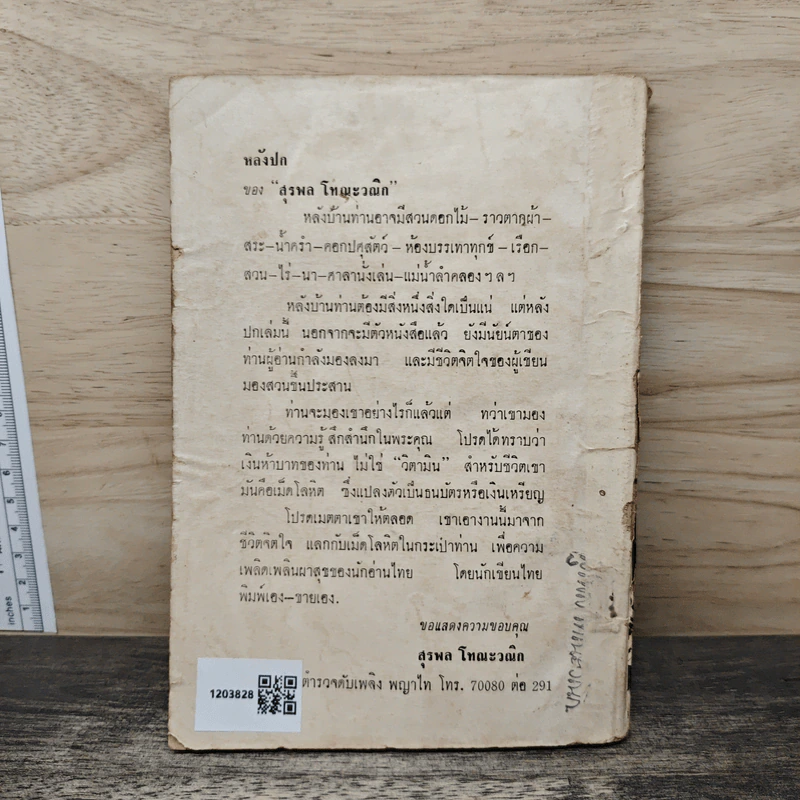 หลังปก
ของ "สุรพล โทณะวณิก"
หลังบ้านท่านอาจมีสวนดอกไม้–ราวตากผ้า–
สระ–น้ำครำ–คอกปศุสัตว์–ห้องบรรเทาทุกข์–เรือก–
สวน–ไร่–นา–ศาลานั่งเล่น–แม่น้ำลำคลองฯลฯ
หลังบ้านท่านต้องมีสิ่งหนึ่งสิ่งใดเป็นแน่ แต่หลัง
ปกเล่มนี้ นอกจากจะมีตัวหนังสือแล้ว ยังมีนัยน์ตาของ
ท่านผู้อ่านกำลังมองลงมา และมีชีวิตจิตใจของผู้เขียน
มองสวนขึ้นประสาน
ท่านจะมองเขาอย่างไรก็แล้วแต่ ทว่าเขามอง
ท่านด้วยความรู้สึกสำนึกในพระคุณ โปรดได้ทราบว่า
เงินห้าบาทของท่าน ไม่ใช่ "วิตามิน" สำหรับชีวิตเขา
มันคือเม็ดโลหิต ซึ่งแปลงตัวเป็นธนบัตรหรือเงินเหรียญ
โปรดเมตตาเขาให้ตลอด เขาเอางานนี้มาจาก
ชีวิตจิตใจ แลกกับเม็ดโลหิตในกระเป๋าท่าน เพื่อความ
เพลิดเพลินผาสุขของนักอ่านไทย โดยนักเขียนไทย
พิมพ์เอง–ขายเอง.
ขอแสดงความขอบคุณ
สุรพล โทณะวณิก
ตำรวจดับเพลิง พญาไท โทร. 70080 ต่อ 291
1203828
inches